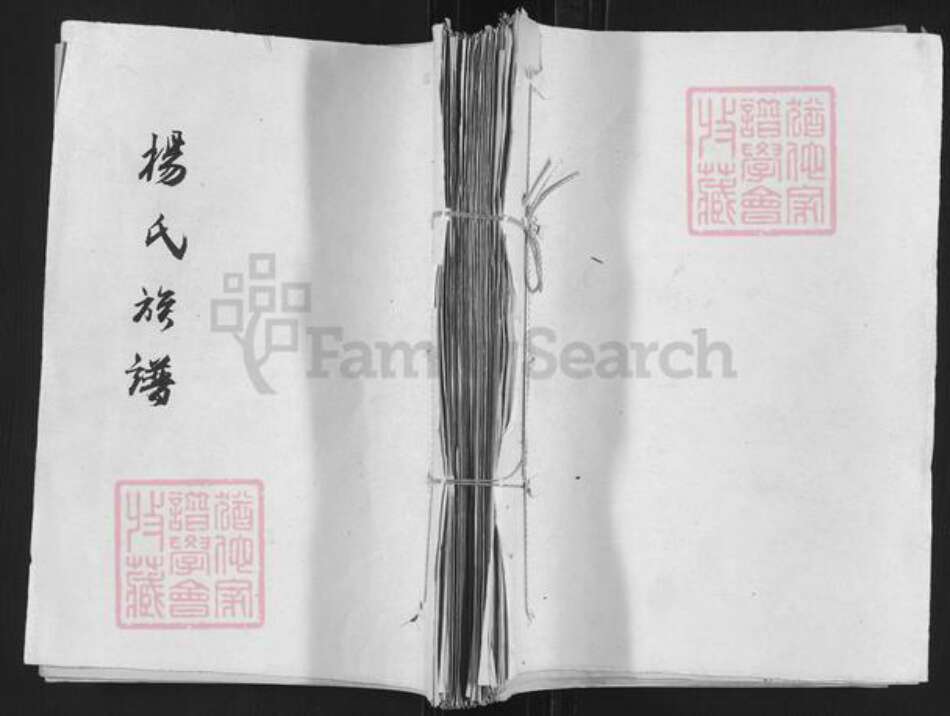 楊氏族譜
猶他家
譜學會
收藏
FamilySearch
猶他家
譜學會
收藏